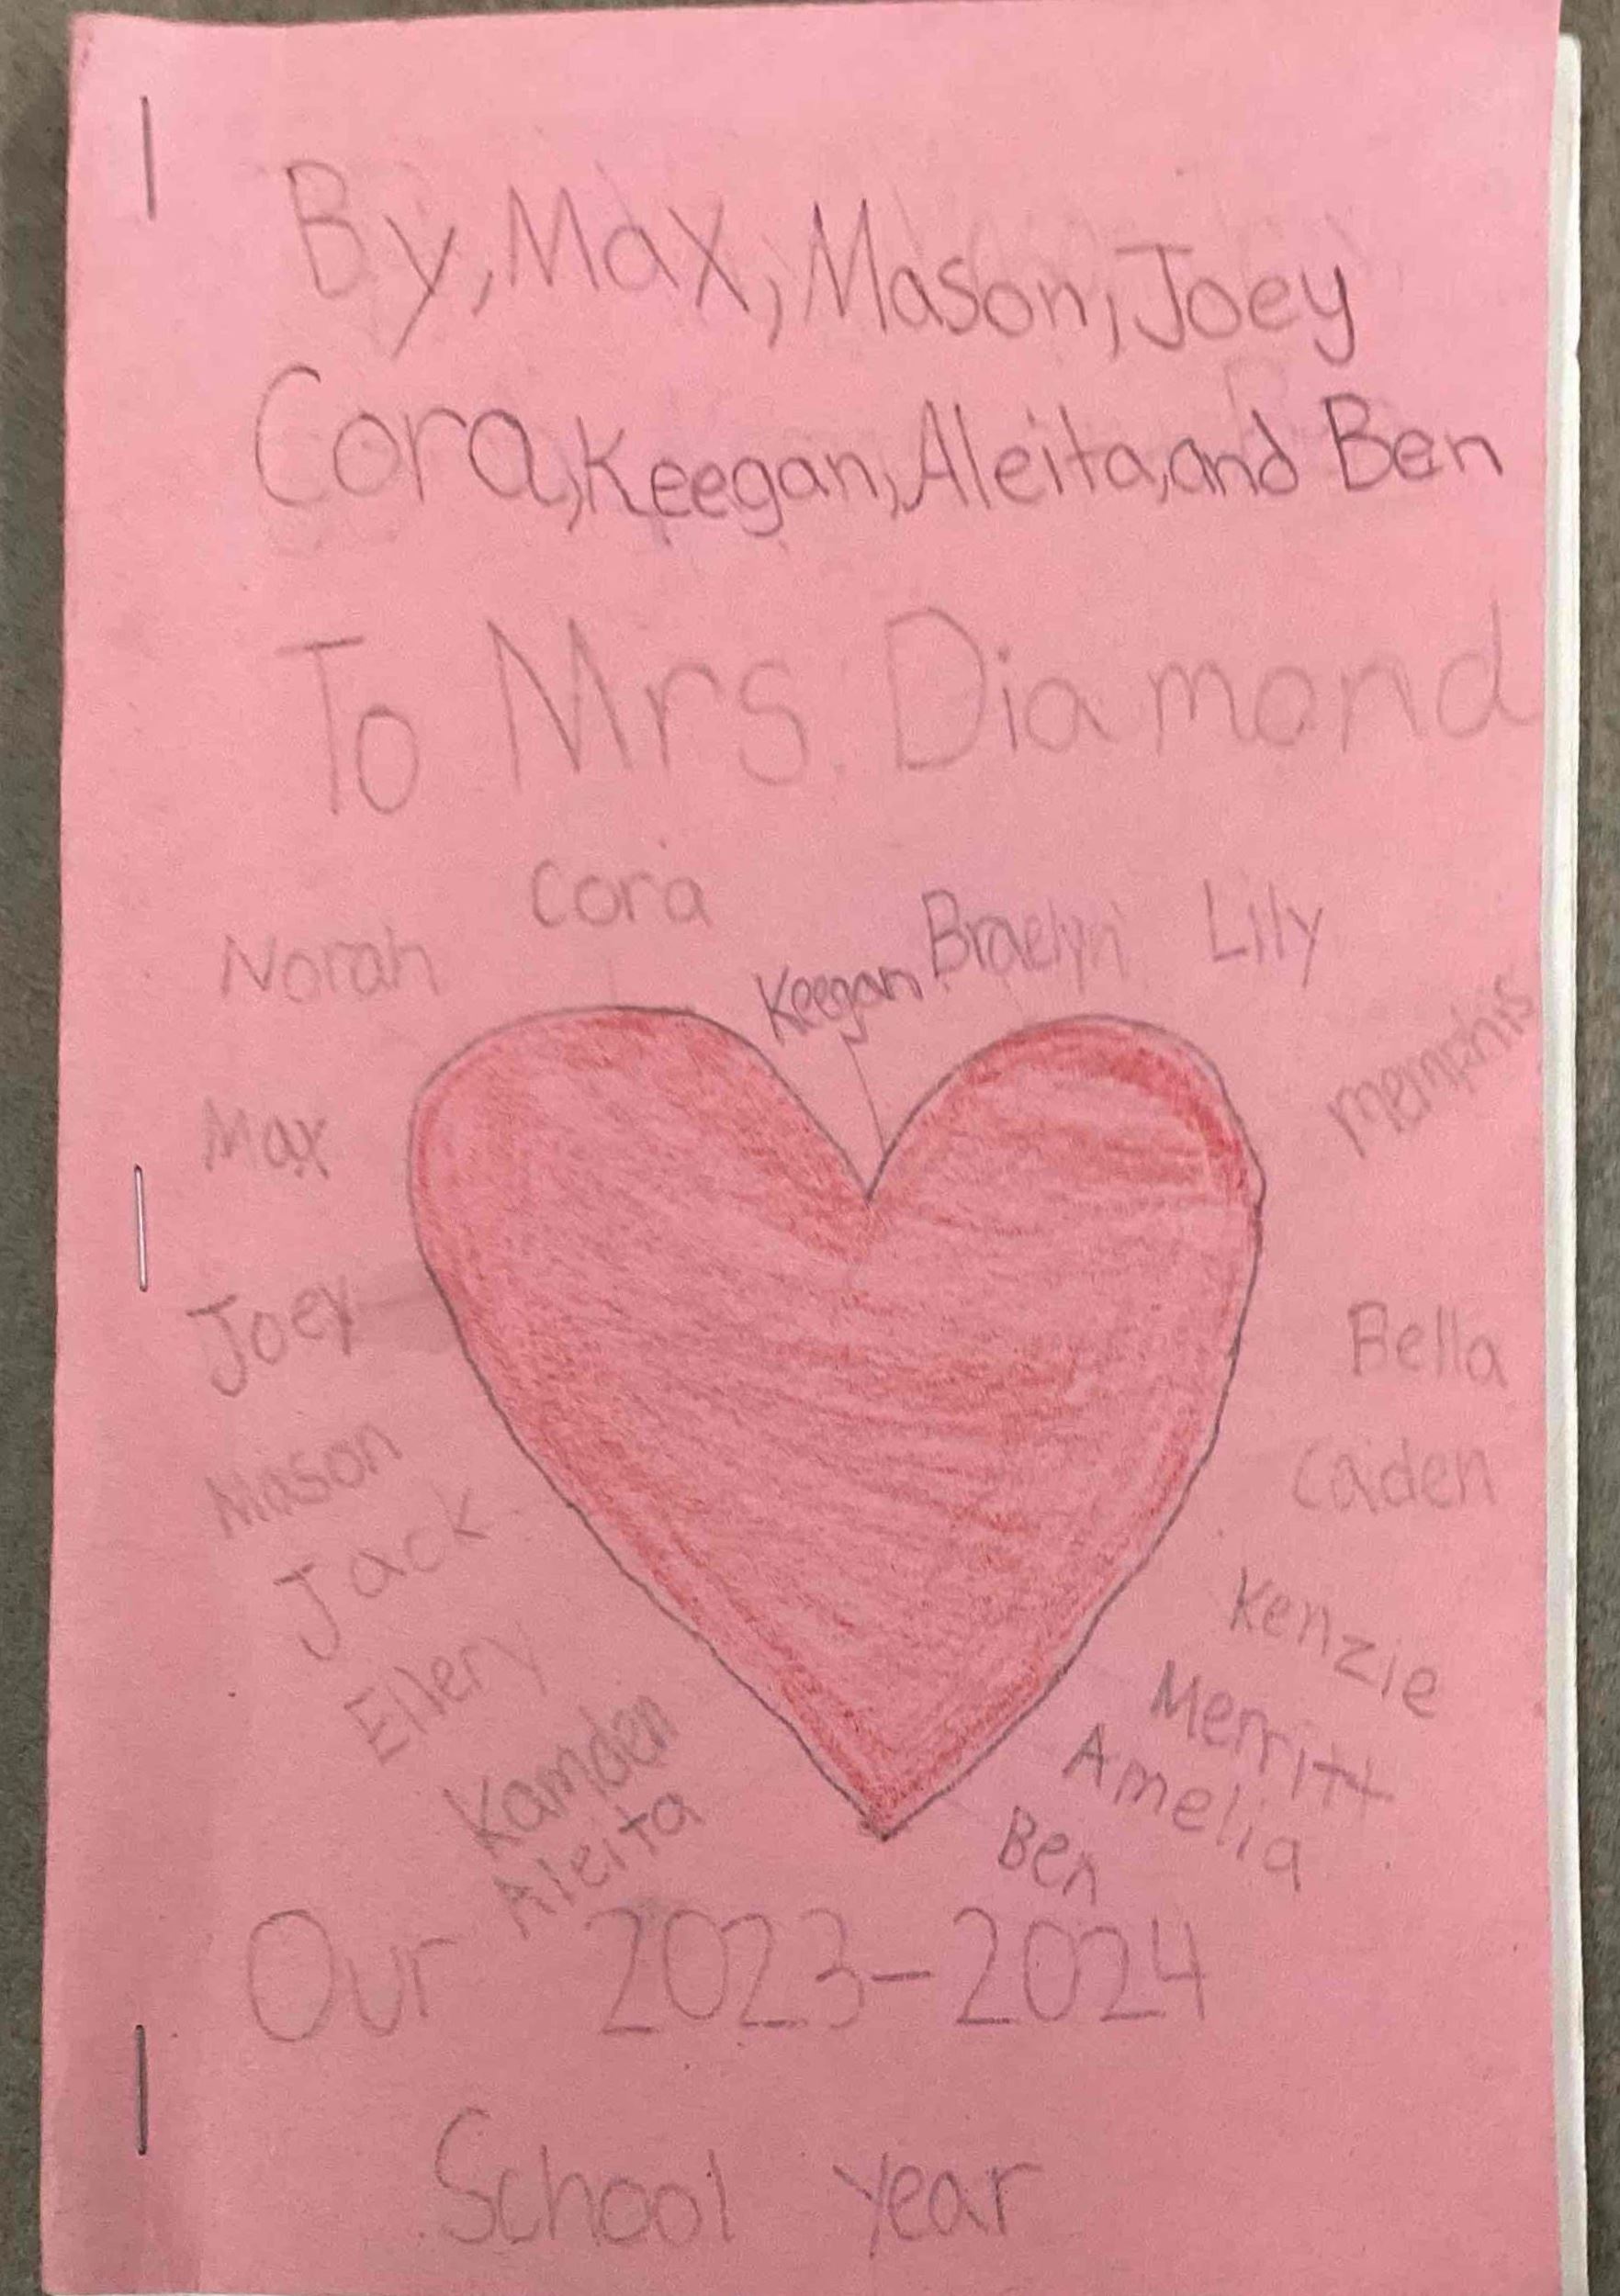 By, Max, Mason, Joey
Cora, Keegan, Aleita, and Ben
To Mrs. Diamond
Cora
Norah
Keegan
Braelyn
Lily
Memphis
Max
Joey
Bella
Mason
Caden
Jack
Kenzie
Ellery
Merritt
Kamden
Amelia
Aleita
Ben
Our 2023-2024
School year